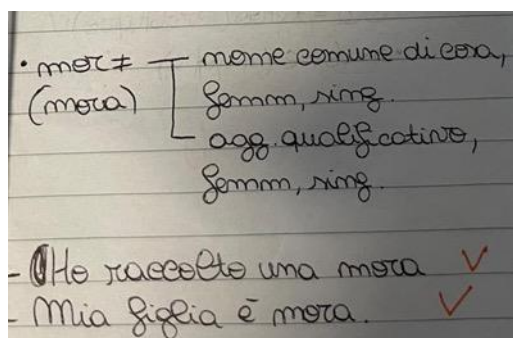 • mor≠ nome comune di cosa,
(mora) femm, sing.
agg. qualificativo,
femm, sing.
- Ho raccolto una mora
- Mia figlia è mora.